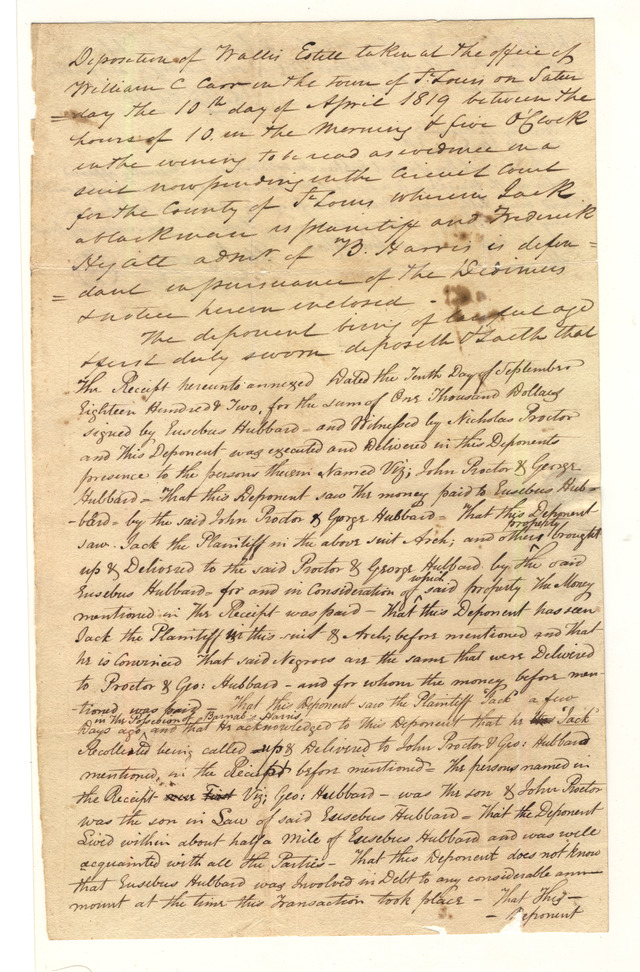 Deposition of Wallis Estill taken at the office of
William C Carr in the town of St Louis on Satur
= day the 10th day of April 1819 between the
hours of 10. in the Morning & five O'Clock
in the evening to be read as evidence in a
suit now pending in the Circuit Court
for the County of St Louis wherein Jack
a black man is plaintiff and Frederick
Hyatt admr. of B. Harris is defen=
= dant in pursuance of the Dedimus
& notice herein enclosed -
The deponent being of lawful age
& first duly sworn deposeth & saith that
The Receipt hereunto annexed Dated the Tenth Day of September
Eighteen Hundred & Two, for the sum of One Thousand Dollars
signed by Eusebus Hubbard - and Witnessed by Nicholas Proctor
and This Deponent was executed and Delivered in this Deponents
presence to the persons therein Named Viz; John Proctor & George
Hubbard = That this Deponent saw The money paid to Eusebus Hub=
-bard = by the said John Proctor & Gorge Hubbard = That this Deponent
saw. Jack the Plaintiff in the above suit Arch; and others property brought
up & Delivered to the said Proctor & George Hubbard by the said
Eusebus Hubbard = for and in Consideration of which said property The Money
mentioned in the Receipt was paid - that this Deponent has seen
Jack the Plaintiff in this suit & Arch, before mentioned and that
he is Convinced That said Negroes are the same that were Delivered
to Proctor & Geo: Hubbard - and for whom the money before men-
-tioned was paid That this Deponent saw the Plaintiff "Jack" a few
Days ago in the Possession of Barnabs Harris, and that He acknowledged to this Deponent that he Jack
Recollected being called up & Delivered to John Proctor & Geo: Hubbard
mentioned, in the Receipt before mentioned = The persons named in
the Receipt Viz; Geo: Hubbard - was the son & John Proctor
was the son in Law of said Eusebus Hubbard = That the Deponent
Lived within about half a Mile of Eusebus Hubbard and was well
acquainted with all the Parties - That this Deponent does not know
that Eusebus Hubbard was Involved in Debt to any considerable am=
mount at the time this Transaction took place - That This -
- Deponent